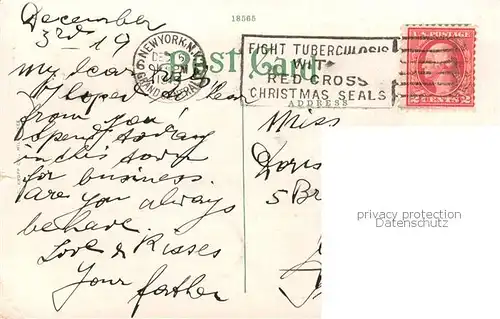 18565
December
3rd 19
NEW YORK, N.Y.
GRAND CENTRAL
FIGHT TUBERCULOSIS
WITH
RED CROSS
CHRISTMAS SEALS
U.S. POSTAGE
2 CENTS 2
Post Card
ADDRESS
my dear
I hope hear
from you
I spend today
in this town
for business.
are you always
behave.
Love & Kisses
Your father
Miss
Doris
5 Br
privacy protection
Datenschutz